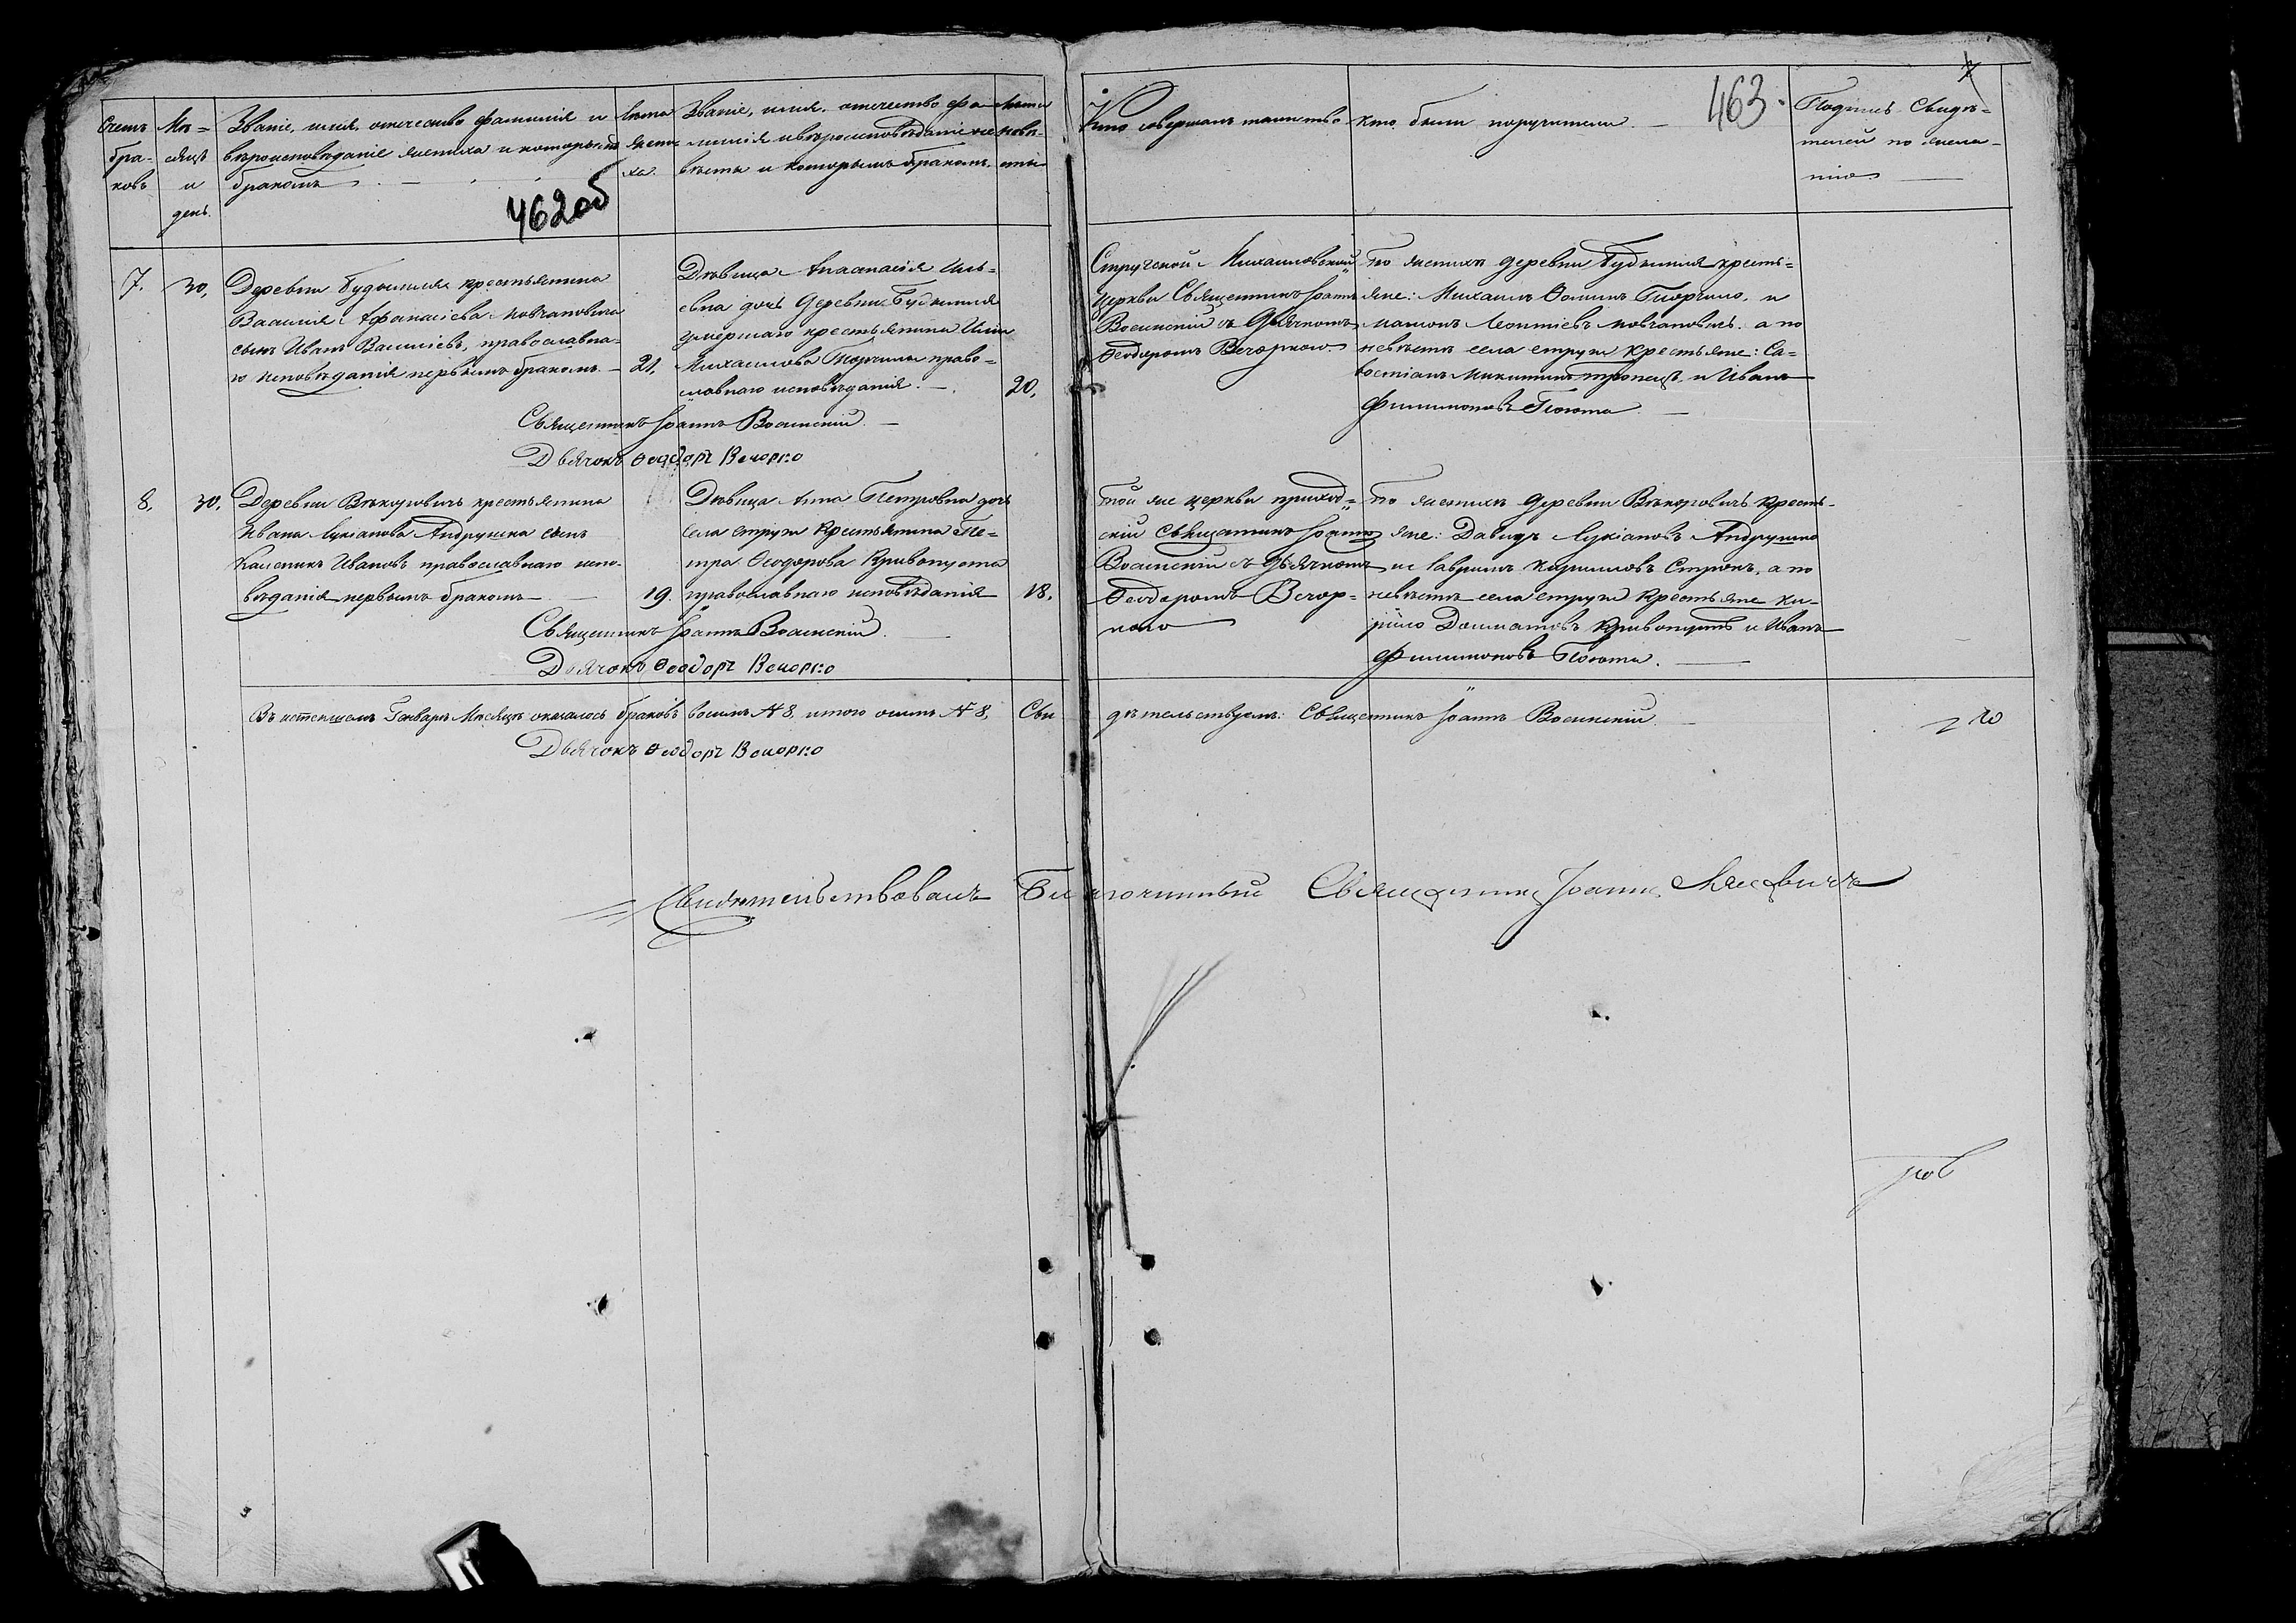 Счетъ бра-
ковъ
Мѣ-
сяцъ
и
день.
Званіе, имя, отечество фамилія и
вѣроисповѣданіе жениха и которымъ
бракомъ
Лѣта
жени-
ха.
Званіе, имя, отечество фа-
милія и вѣроисповѣданіе не-
вѣсты и которымъ бракомъ.
Лѣта
невѣ-
сты
462об
Кто совершалъ таинство
кто были поручители
463.
Подпись свидѣ-
телей по жела-
нію
7
7.
30.
Деревни Будимля крестьянина
Василія Афанасіева Мовчановича
сынъ Иванъ Василіевъ, православна-
го исповѣданія первымъ бракомъ
21.
Дѣвица Анастасія Иль-
евна дочь Деревни Будимля
умершаго крестьянина Иліи
Михаилова право-
славнаго исповѣданія
20.
Стружской Михаиловской
Церкви Священникъ Іоаннъ
Воинскій съ Дьячкомъ
Ѳеодоромъ Вечоркою
По женихѣ деревни Будимля кресть-
яне: Михаилъ Ѳоминъ и
Леонтіевъ Мовчановичъ. а по
невѣстѣ села Струги крестьяне: Са-
востіанъ Микитинъ и Иванъ
Филимоновъ
Священникъ Іоаннъ Воинскій
Дьячокъ Ѳеодоръ Вечорко
8.
30.
Деревни Вѣкоровичъ крестьянина
Ивана Лукіанова Андрушка сынъ
Каленикъ Ивановъ православнаго испо-
вѣданія первымъ бракомъ
19.
Дѣвица Анна Петровна дочь
села Струги крестьянина Пе-
тра Ѳеодорова Кривопуста
православнаго исповѣданія
18.
Той же церкви приход-
скій священникъ Іоаннъ
Воинскій съ Дьячкомъ
Ѳеодоромъ Вечор-
кою
По женихѣ деревни Вѣкоровичъ кресть-
яне: Давидъ Лукіановъ Андрушко
и Гаврилъ Кириловъ а по
невѣстѣ села Струги крестьяне Ки-
рило Кривопустъ и Иванъ
Филимоновъ
Священникъ Іоаннъ Воинскій
Дьячокъ Ѳеодоръ Вечорко
Въ истекшемъ Генварѣ Мѣсяцѣ оказалось браковъ восемь № 8, итого осмь № 8, Сви-
дѣтельствуемъ: Священникъ Іоаннъ Воинскій
Дьячокъ Ѳеодоръ Вечорко
Свидѣтельствовалъ Благочинный Священникъ Іоаннъ